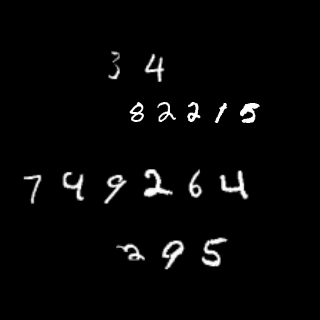 34
82215
749264
295